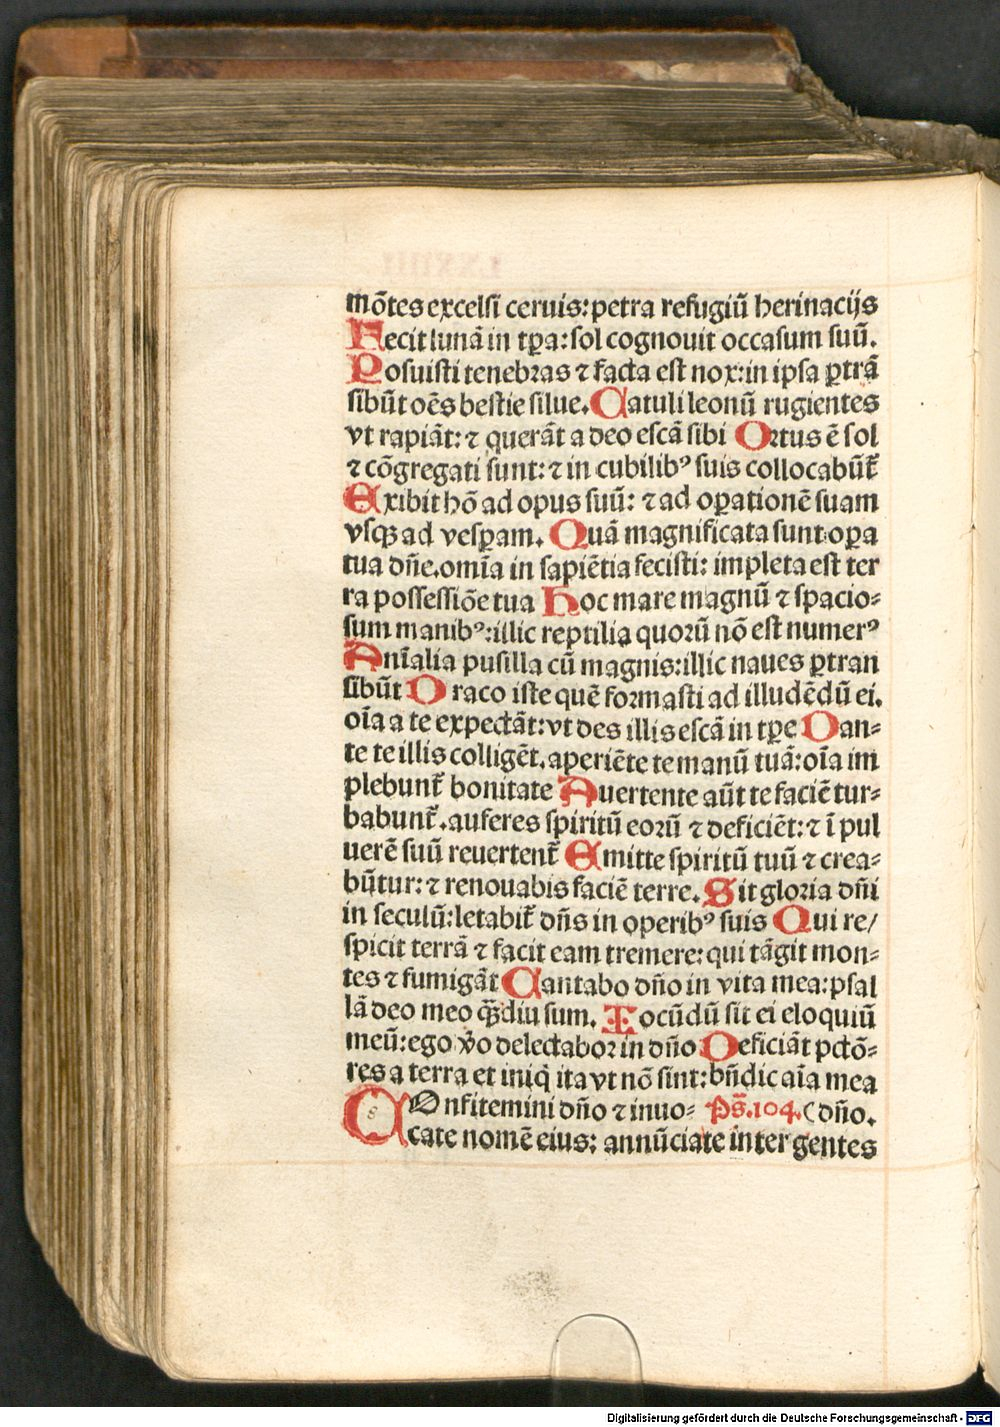 mōtes excelsi ceruis: petra refugiū herinacijs
Fecit lunā in tꝑa: sol cognouit occasum suū.
Posuisti tenebras ⁊ facta est nox: in ipsa ꝑtrā
sibūt oēs bestie silue. Catuli leonū rugientes
vt rapiāt: ⁊ querāt a deo escā sibi Ortus ē sol
⁊ cōgregati sunt: ⁊ in cubilibꝰ suis collocabūt̄
Exibit hō ad opus suū: ⁊ ad oꝑationē suam
vsqꝫ ad vesꝑam. Quā magnificata sunt oꝑa
tua dn̄e. omīa in sapiētia fecisti: impleta est ter
ra possessiōe tua Hoc mare magnū ⁊ spacio⸗
sum manibꝰ: illic reptilia quoꝛū nō est numerꝰ
Anīalia pusilla cū magnis: illic naues ꝑtran
sibūt Draco iste quē foꝛmasti ad illudēdū ei.
oīa a te expectāt: vt des illis escā in tꝑe Dan⸗
te te illis colligēt. aperiēte te manū tuā: oīa im
plebunt̄ bonitate Auertente aūt te faciē tur⸗
babunt̄. auferes spiritū eoꝛū ⁊ deficiēt: ⁊ ī pul
uerē suū reuertent̄ Emitte spiritū tuū ⁊ crea⸗
būtur: ⁊ renouabis faciē terre. Sit gloꝛia dn̄i
in seculū: letabit̄ dn̄s in operibꝰ suis Qui re/
spicit terrā ⁊ facit eam tremere: qui tāgit mon⸗
tes ⁊ fumigāt Cantabo dn̄o in vita mea: psal
lā deo meo qꝫ̄diu sum. Iocūdū sit ei eloquiū
meū: ego v̄o delectaboꝛ in dn̄o Deficiāt pctō⸗
res a terra et iniqͥ ita vt nō sint: bn̄dic aīa mea
COnfitemini dn̄o ⁊ inuo⸗ Ps̄. 104. (dn̄o.
cate nomē eius: annūciate inter gentes
Digitalisierung gefördert durch die Deutsche Forschungsgemeinschaft - DFG